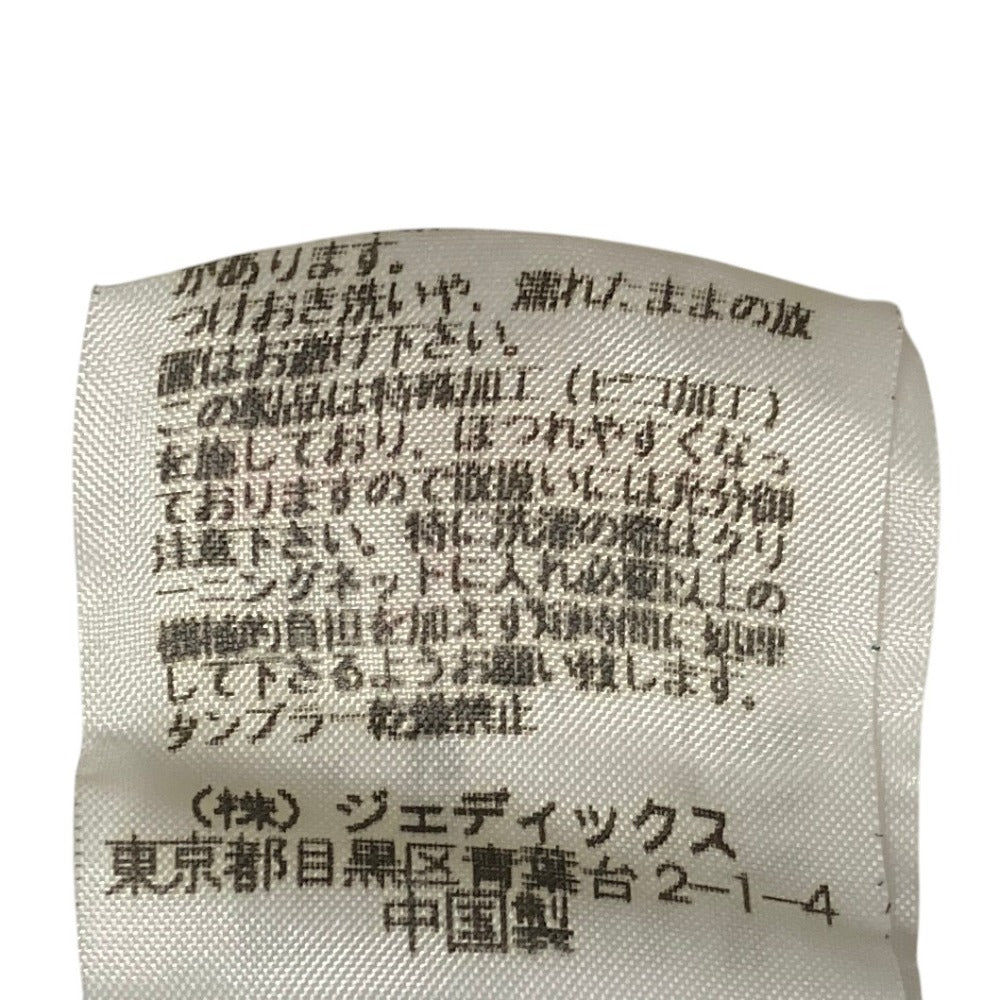 があります。
つけおき洗いや、濡れたままの放
置はお避け下さい。
この製品は特殊加工(ピコ加工)
を施しており、ほつれやすくなっ
ておりますので取扱いには充分御
注意下さい。特に洗濯の際はクリ
ーニングネットに入れ必要以上の
機械的負担を加えず短時間に処理
して下さるようお願い致します。
タンブラー乾燥禁止
(株)ジェディックス
東京都目黒区青葉台2-1-4
中国製